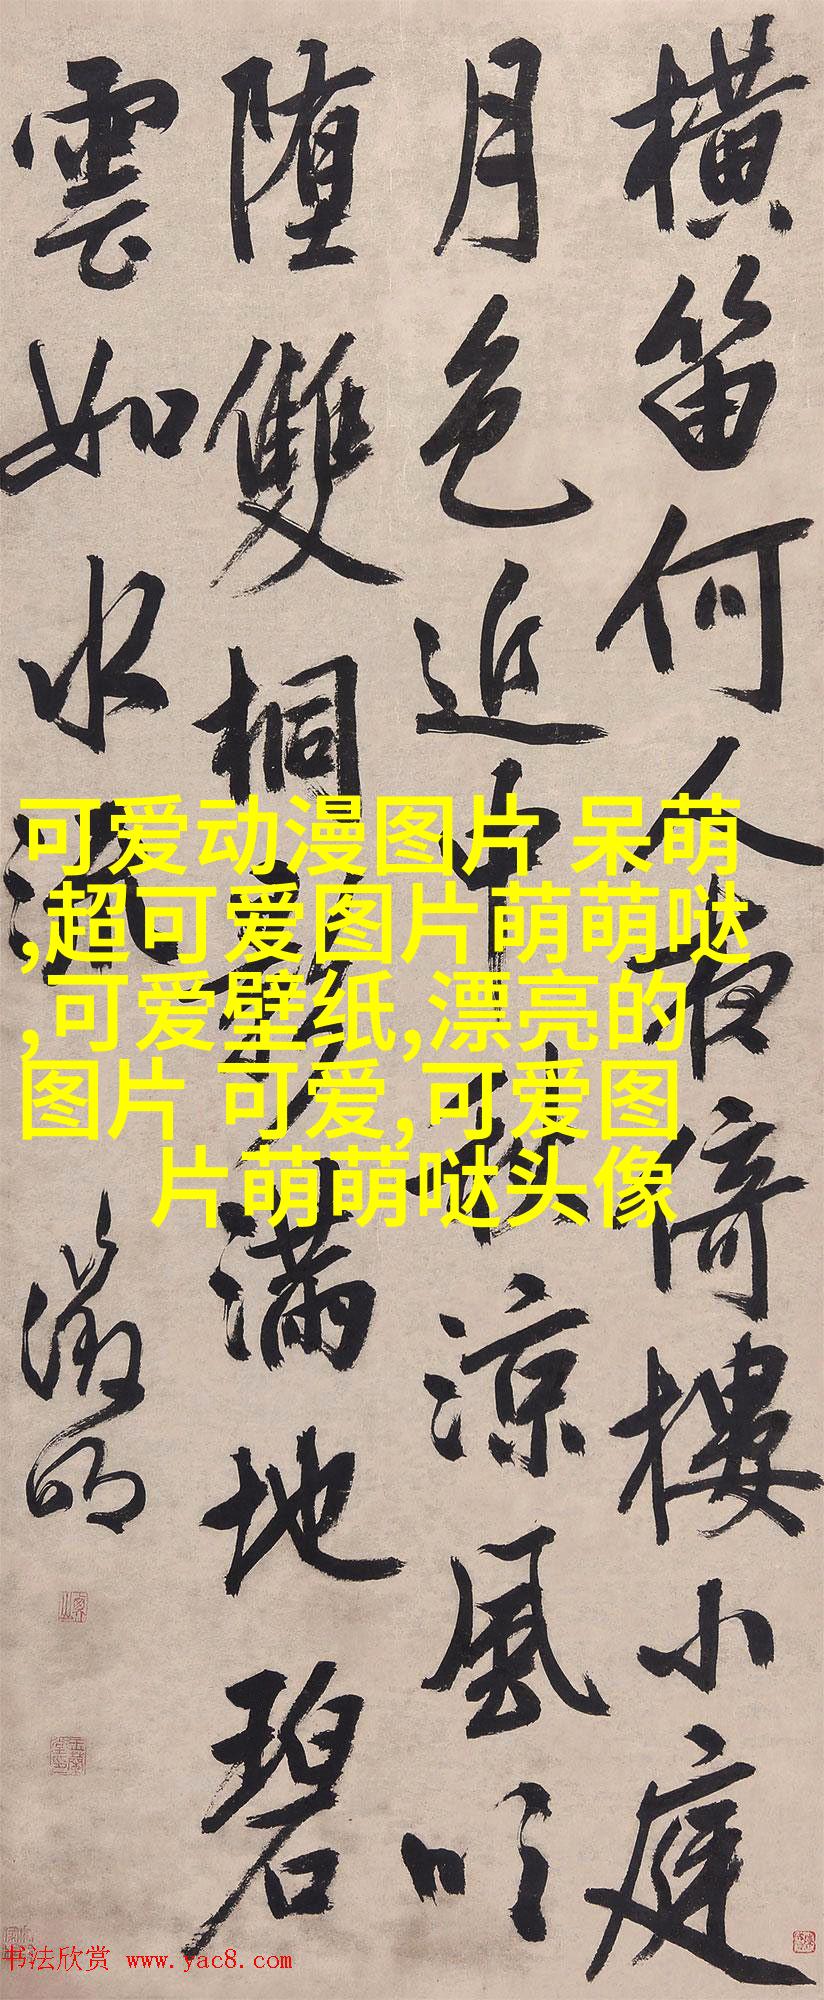 横笛何人夜倚樓小庭
月色近中秋涼風吹
堕雙桐影滿地碧
雲如水流
徵明
可爱动漫图片 呆萌
,超可爱图片萌萌哒
,可爱壁纸,漂亮的
图片 可爱,可爱图
片萌萌哒头像
书法欣赏 www.yac8.com